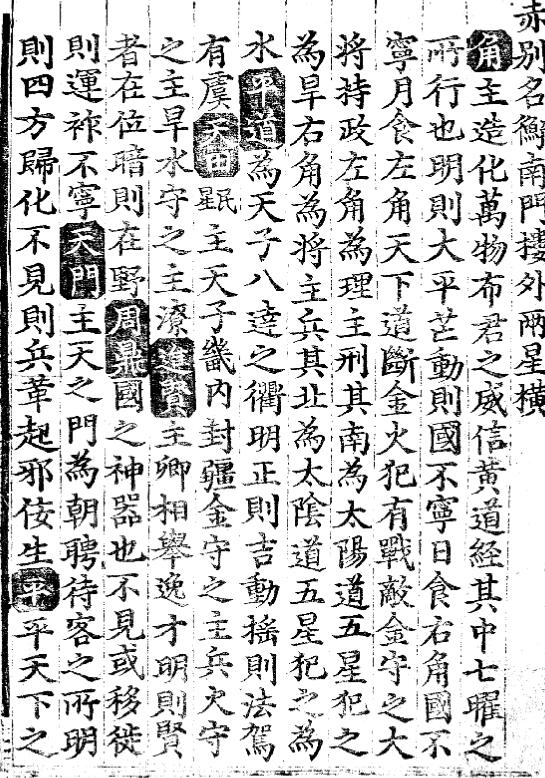 赤别名觧南門摟外兩星橫
角主造化萬物布君之威信黃道經其中七曜之
所行也明則大平芒動則國不寧日食右角國不
寧月食左角天下道斷金火犯有戰敵金守之大
将持政左角為理主刑其南為太陽道五星犯之
為旱右角為将主兵其北為太陰道五星犯之為
水平道為天子八達之衢明正則吉動揺則法駕
有虞天田星民主天子畿内封疆金守之主兵火守
之主旱水守之主潦進賢主卿相舉逸才明則賢
者在位暗則在野周鼎國之神器也不見或移徙
則運祚不寧天門主天之門為朝聘待客之所明
則四方歸化不見則兵革起邪佞生平平天下之